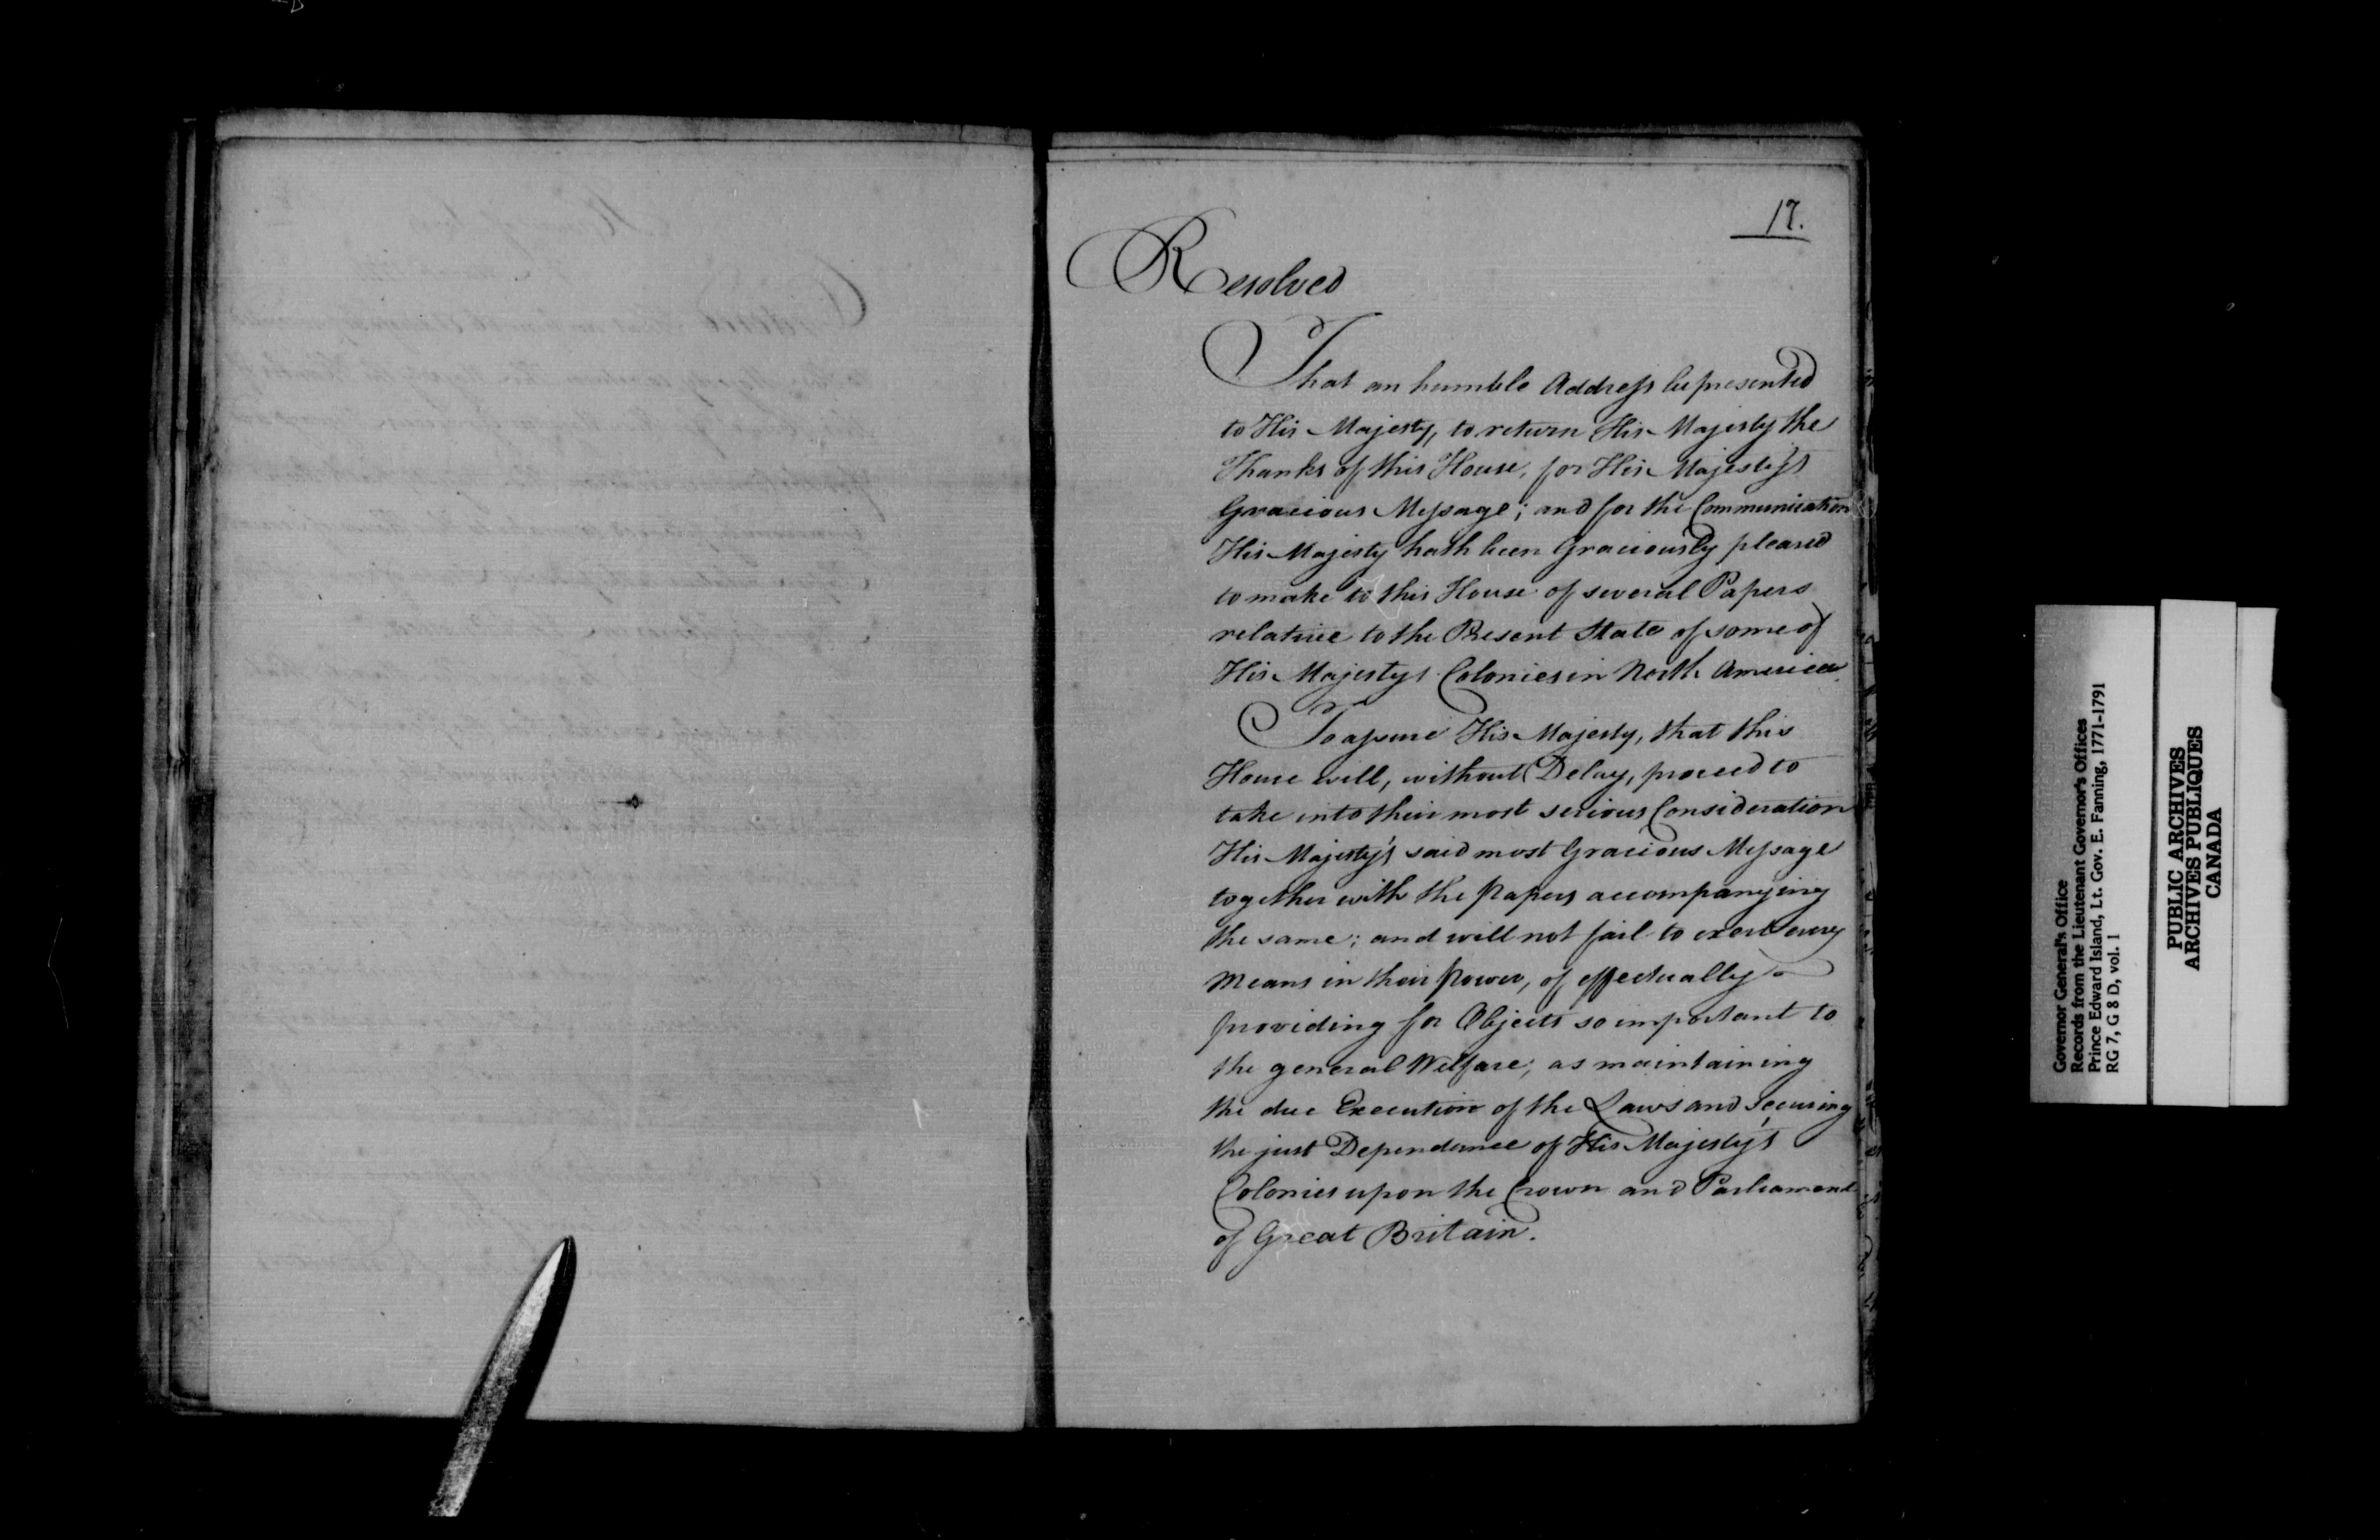 17.
Resolved
That an humble Address be presented
to His Majesty, to return His Majesty the
Thanks of this House, for His Majesty's
Gracious Message; and for the Communication
His Majesty hath been Graciously pleased
to make to this House of several Papers
relative to the Present State of some of
His Majestys Colonies in North America.
To assure His Majesty, that this
House will, without Delay, proceed to
take into their most serious Consideration
His Majesty's said most Gracious Message
together with the papers accompanying
the same; and will not fail to exert every
means in their power, of effectually
providing for Objects so important to
the general Welfare, as maintaining
the due Execution of the Laws and Securing
the just Dependance of His Majesty's
Colonies upon the Crown and Parliament
of Great Britain.
Governor General's Office
Records from the Lieutenant Governor's Offices
Prince Edward Island, Lt. Gov. E. Fanning, 1771-1791
RG 7, G 8 D, vol. 1
PUBLIC ARCHIVES
ARCHIVES PUBLIQUES
CANADA